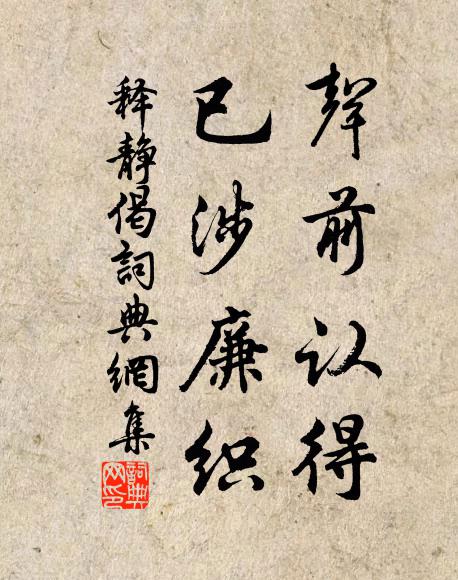 声前认得
已涉廉织
释静偈詞典網集
詞典网印